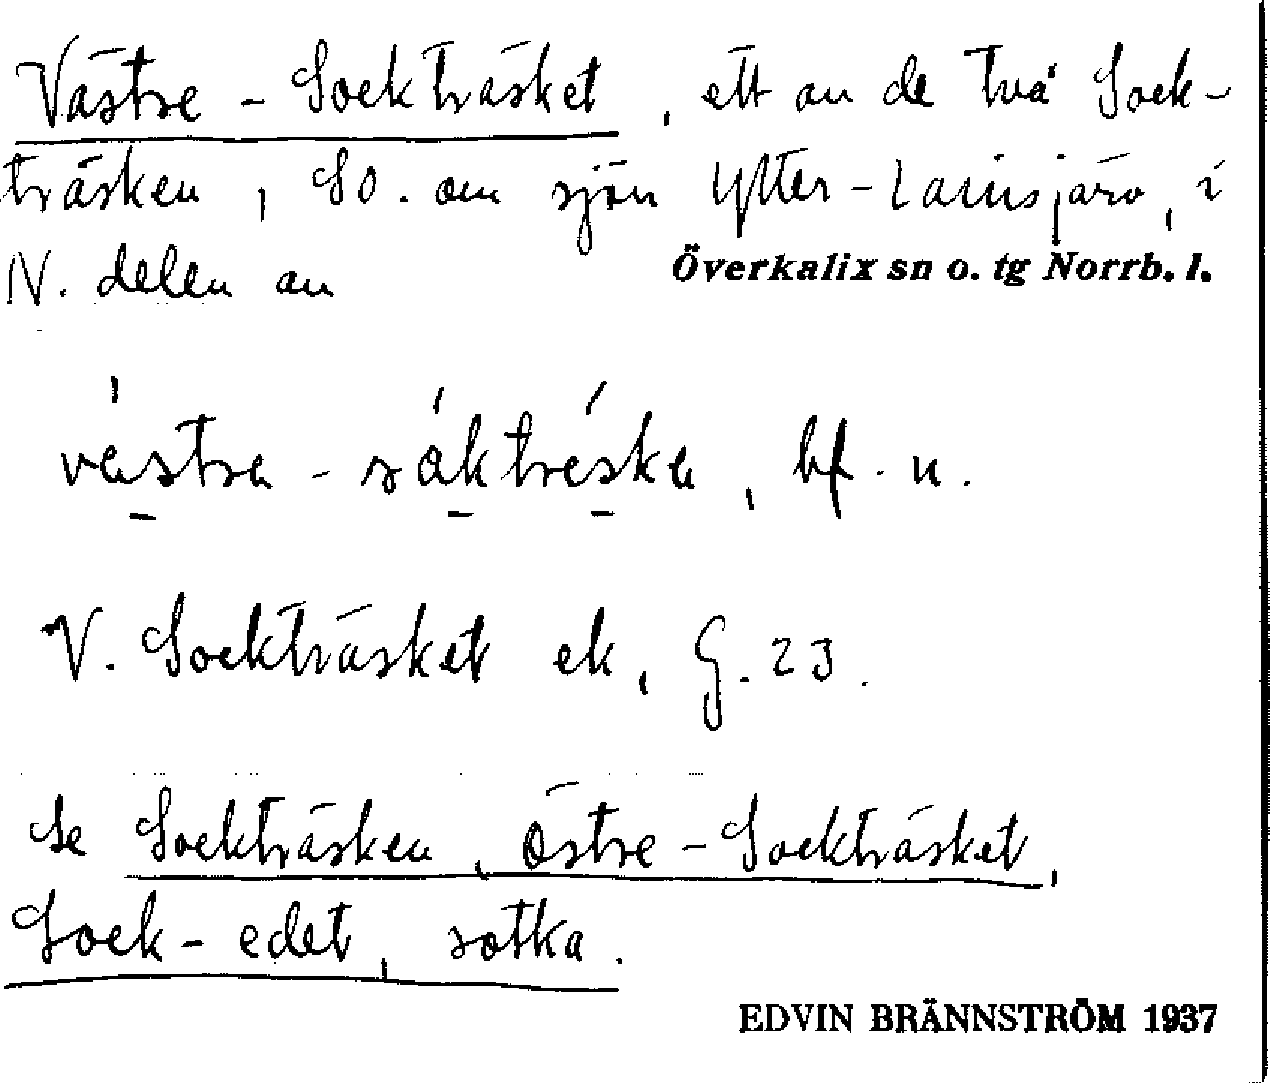 Västre - Sockträsket, ett av de två Sock-
träsken, SO. om sjön Ytter-Lansjärv, i
N. delen av Överkalix sn o. tg Norrb. l.
västra - såktréska, bf. n.
V. Sockträsket ek, G. 23.
Se Sockträsken, Östre-Sockträsket,
Sock-edet, sotka.
EDVIN BRÄNNSTRÖM 1937